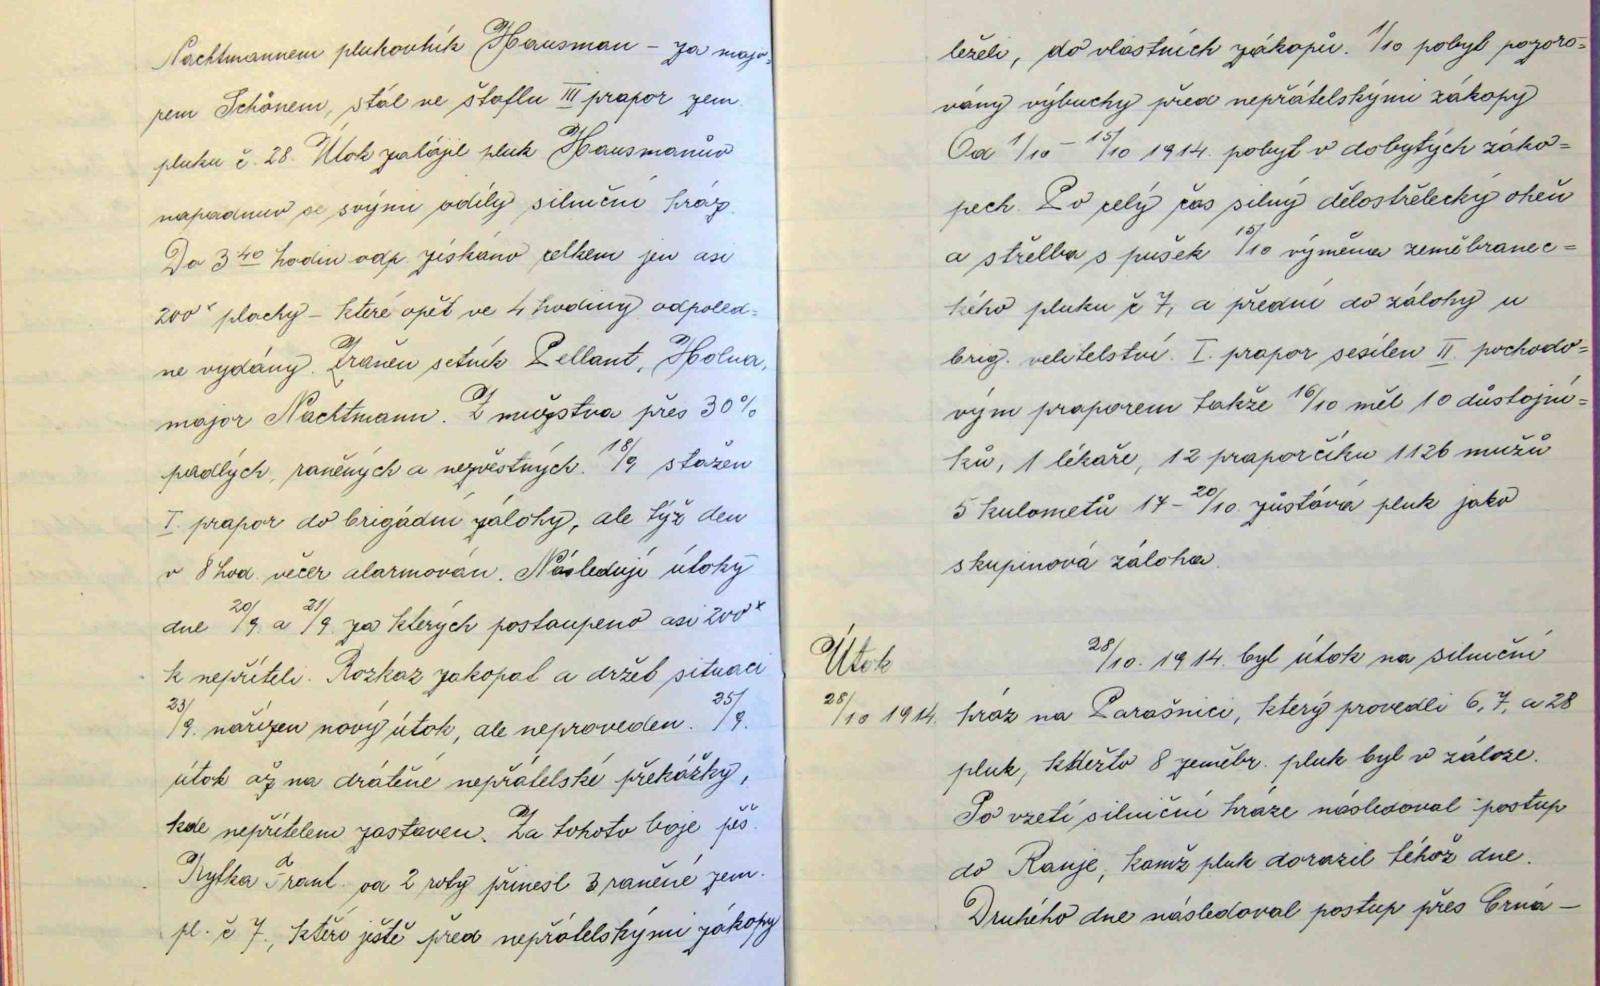 Nachtmannem plukovník Hausman – za majo-
rem Schönem, stál ve štaflu III prapor zem.
pluku č. 28. Útok zahájil pluk Hausmanův
napadnuv se svými oddíly silniční hráz.
Do 3 40 hodin odp. získáno celkem jen asi
200x plochy – které opět ve 4 hodiny odpoled=
ne vydány. Zraněn setník Pellant, Holna,
major Nachtmann. Z mužstva přes 30%
padlých, raněných a nezvěstných. 18/9 stažen
I. prapor do brigádní zálohy, ale týž den
v 8 hod. večer alarmován. Následují útoky
dne 20/9. a 21/9. za kterých postoupeno asi 200x
k nepříteli. Rozkaz zakopat a držet situaci
23/9. nařízen nový útok, ale neproveden. 25/9.
útok až na drátěné nepřátelské překážky,
kde nepřítelem zastaven. Za tohoto boje pěš.
Rytka Frant. od 2 roty přinesl 3 raněné zem.
pl. č 7., kteří ještě před nepřátelskými zákopy
leželi, do vlastních zákopů. 1/10 pobyl pozoro=
vány výbuchy před nepřátelskými zákopy
Od 1/10 – 15/10 1914. pobyt v dobytých záko=
pech. Po celý čas silný dělostřelecký oheň
a střelba s pušek 15/10 výměna zeměbranec=
kého pluku č 7, a přední do zálohy u
brig. velitelství. I. prapor sesílen II. pochodo=
vým praporem takže 16/10 měl 10 důstojní=
ků, 1 lékaře, 12 praporčíku 1126 mužů
5 kulometů 17 – 20/10. zůstává pluk jako
skupinová záloha.
Útok
28/10 1914.
28/10. 1914. byl útok na silniční
hráz na Parašnici, který provedli 6, 7, a 28
pluk, kdežto 8 zeměbr. pluk byl v záloze.
Po vzetí silniční hráze následoval postup
do Ranje, kamž pluk dorazil téhož dne.
Druhého dne následoval postup přes Crná –